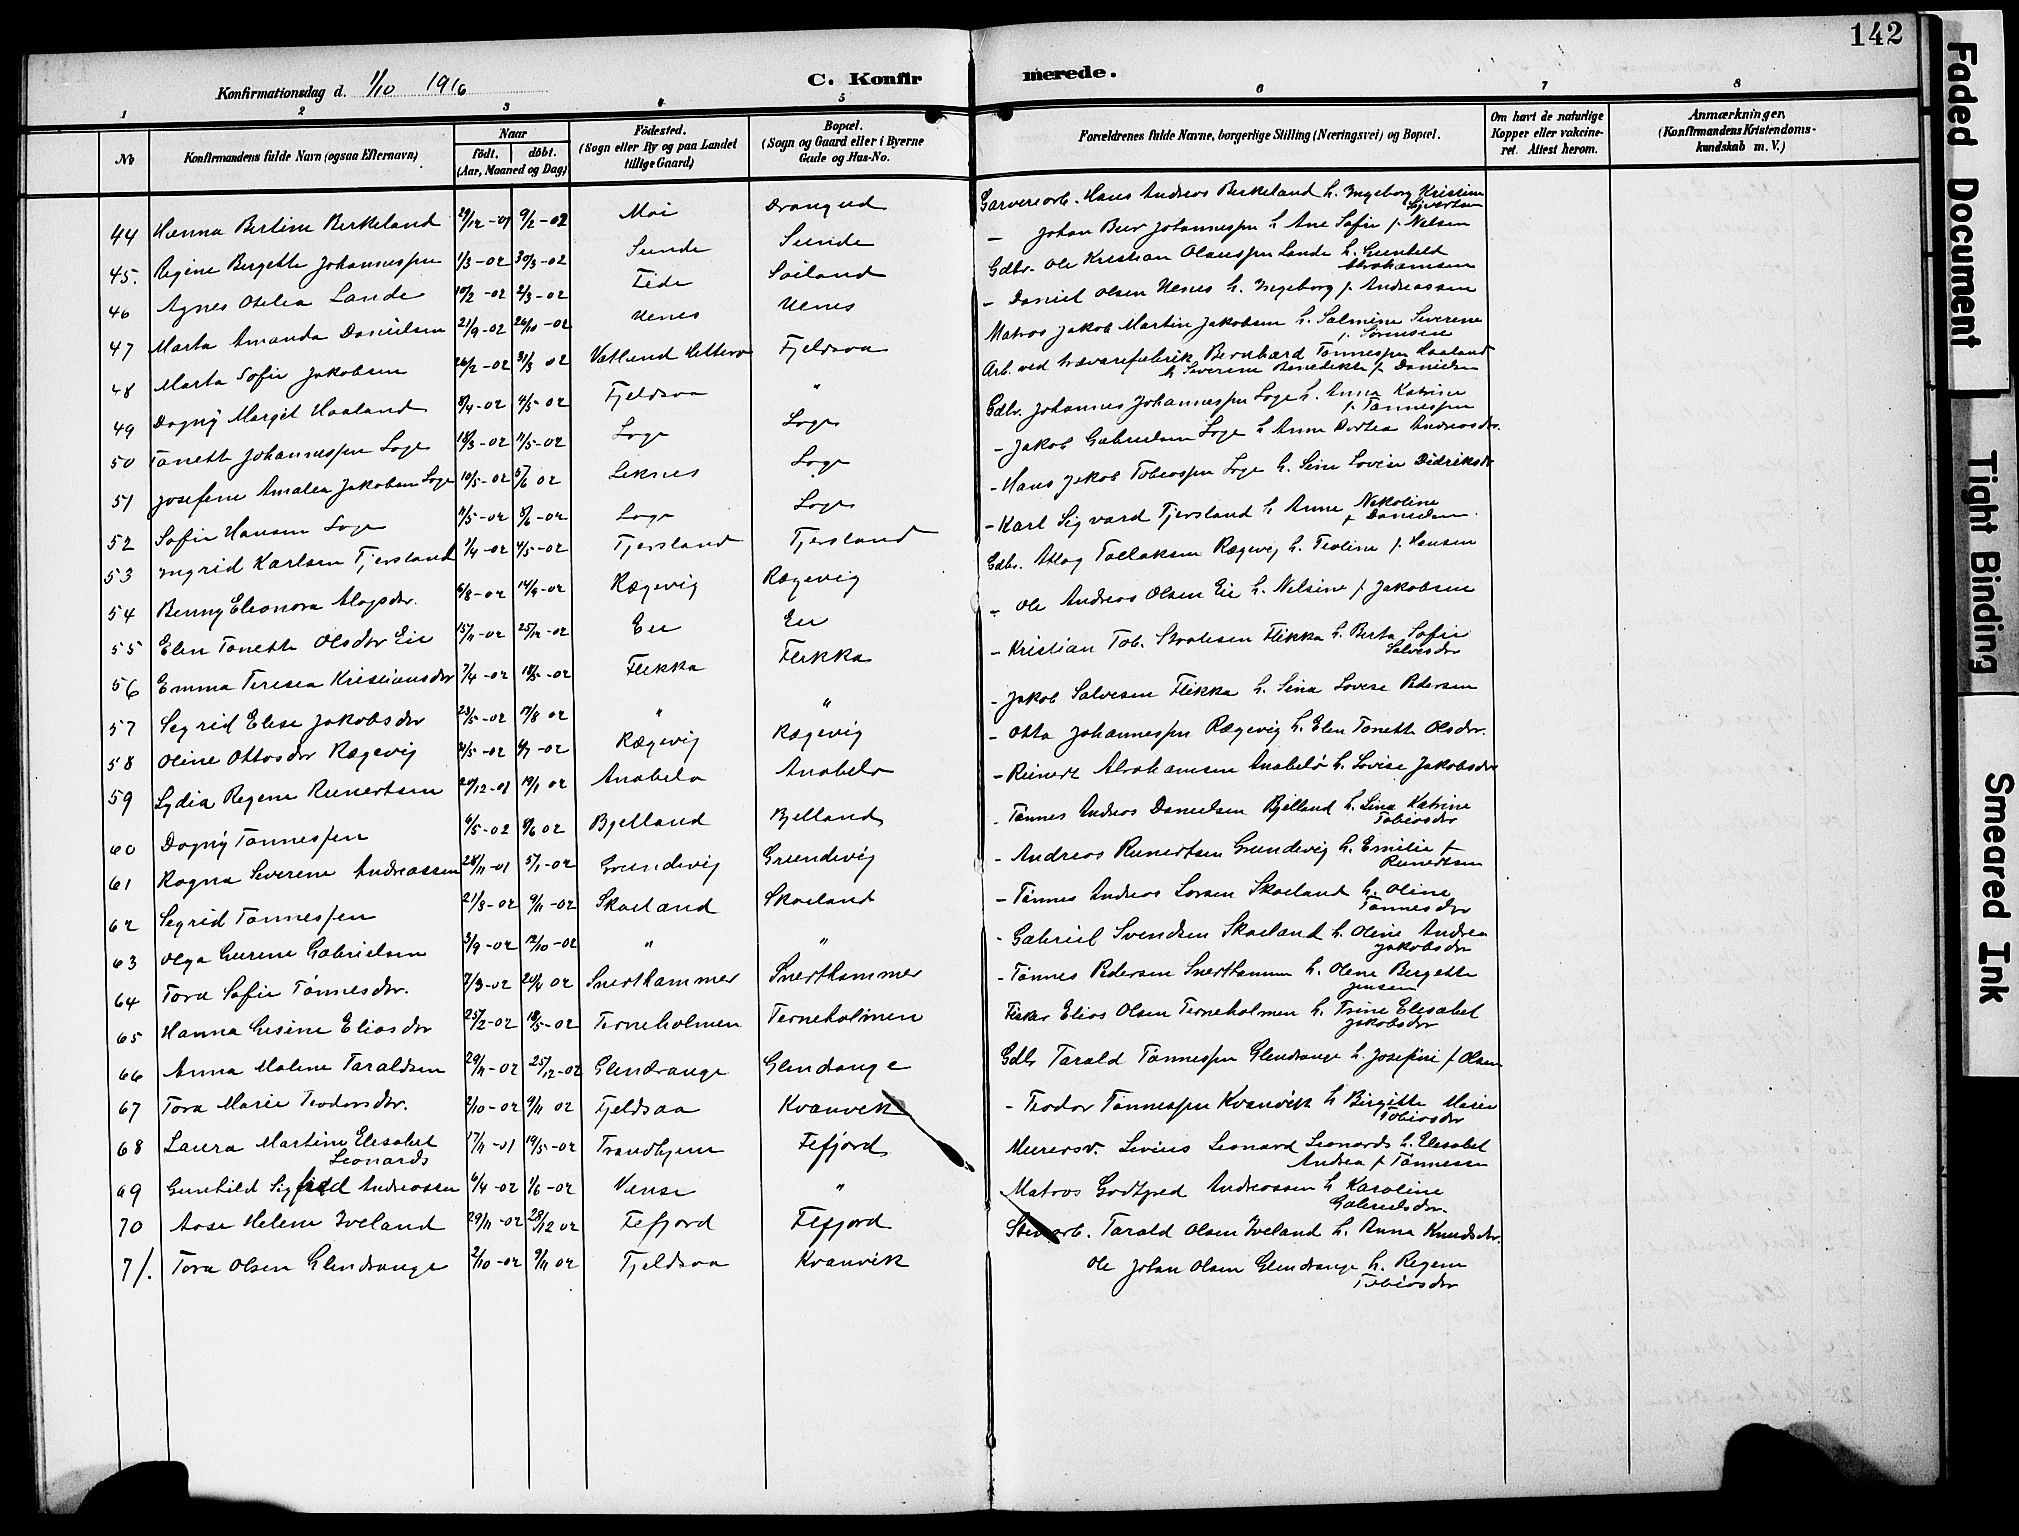 142
Konfirmationsdag d. 1/10 1916
C. Konfirmerede.
1 2 3 4 5 6 7 8
No
Konfirmandens fulde Navn (ogsaa Efternavn)
Naar
födt. döbt.
(Aar, Maaned og Dag)
Födested.
(Sogn eller By og paa Landet
tillige Gaard)
Bopæl.
(Sogn og Gaard eller i Byerne
Gade og Hus-No.
Forældrenes fulde Navne, borgerlige Stilling (Næringsvei) og Bopæl.
Om havt de naturlige
Kopper eller vakcine-
ret. Attest herom.
Anmærkninger,
(Konfirmandens Kristendoms-
kundskab m. V.)
44 Hanna Bertine Berkeland 29/12-01 9/2-02 Moi Drangeid Garveriarb. Hans Andreas Berkeland h. Ingeborg Kristine
Sivertsen
45. Regine Bergette Johannessen 1/3-02 30/3-02 Sunde Sunde – Johan Beer Johannessen h. Ane Sofie f. Nelsen
46 Agnes Otelia Lande 10/2-02 2/3-02 Fede Söiland Gdbr. Ole Kristian Olaussen Lande h. Gunhild
Abrahamsen
47 Marta Amanda Danielsen 21/9-02 26/10-02 Uenes Uenes – Daniel Olsen Uenes h. Ingeborg f. Andreassen
48 Marta Sofie Jakobsen 26/2-02 31/3 02 Vatland Hitterø Fjeldsaa Matros Jakob Martin Jakobsen h. Salmine Severene
f. Sørensen
49 Dagny Margit Haaland 8/4-02 4/5-02 Fjeldsaa " Arb. ved trævarefabrik Bernhard Tønnessen Haaland
h. Severine Benedikte f. Danielsen
50 Tonette Johannessen Loge 18/3-02 11/5-02 Loge Loge Gdbr. Johannes Johannessen Loge h. Anna Katrine
f. Tønnessen
51 Josefine Amalia Jakobsen Loge 10/5-02 5/6 02 Leknes Loge – Jakob Gabrielsen Loge h. Anne Dortea Andreasdr.
52 Sofie Hansen Loge 11/5-02 8/6-02 Loge Loge – Hans Jakob Tobiassen Loge h. Sine Lovise Didriksdr
53 Ingrid Karlsen Tjersland 1/4-02 4/5-02 Tjersland Tjersland – Karl Sigvard Tjersland h. Anne Nikoline
f. Danielsen
54 Benny Eleonora Alagsdr. 6/8-02 14/9-02 Rægevig Rægevig Gdbr. Atlag Tollaksen Rægevig h. Teoline f. Hansen
55 Elen Tonette Olsdtr Eie 15/11-02 25/12-02 Eie Eie – Ole Andreas Olsen Eie h. Nelsine f. Jakobsen
56 Emma Teresia Kristiansdtr 7/4-02 18/5-02 Flikka Flikka – Kristian Tob. Staalesen Flikka h. Berta Sofie
Salvesdtr
57 Sigrid Elise Jakobsdtr 23/5-02 17/8 02 " " – Jakob Salvesen Flikka h. Sina Lovise Pedersen
58 Oline Ottosdtr Rægevig 21/5-02 6/7-02 Rægevig Rægevig – Otto Johannessen Rægevig h. Elen Tonette Olsdtr.
59 Lydia Regine Reinertsen 20/12-01 19/1 02 Anabelø Anabelø – Reinert Abrahamsen Anabelø h. Lovise Jakobsdtr
60 Dagny Tønnessen 6/5-02 8/6 02 Bjelland Bjelland – Tønnes Andreas Danielsen Bjelland h. Lina Katrine
Tobiasdtr
61 Ragna Severine Andreassen 28/11-01 5/1-02 Grundevig Grundevig – Andreas Reinertsen Grundevig h. Emilie f
Reinertsen
62 Sigrid Tønnessen 21/8-02 9/11-02 Skoeland Skoeland – Tønnes Andreas Larsen Skoeland h. Oline
Tønnesdtr
63 Olga Gurine Gabrielsen 3/9-02 12/10-02 " " – Gabriel Svendsen Skoeland h. Oline Andrea
Jakobsdtr
64 Tora Sofie Tønnesdtr. 7/3-02 20/4 02 Snerthammer Snerthammer – Tønnes Pedersen Snerthammer h. Olene Bergette
Jensen
65 Hanna Gusine Eliasdtr 25/2-02 18/5-02 Terneholmen Terneholmen Fisker Elias Olsen Terneholmen h. Trine Elisabet
Jakobsdtr
66 Anna Malene Taraldsen 29/11-02 25/12-02 Glendrange Glendrange Gdbr Tarald Tønnessen Glendrange h. Josefine f. Olsen
67 Tora Marie Teodorsdtr. 2/10-02 9/11 02 Fjeldsaa Kvanvik – Teodor Tønnessen Kvanvik h. Birgitte Marie
Tobiasdtr
68 Laura Martine Elisabet
Leonards 17/11-01 19/5-02 Trondhjem Fefjord Murersv. Sevius Leonard Leonards h. Elisabet
Andrea f Tønnessen
69 Gunhild Sigfrid Andreassen 6/4-02 1/6-02 Vanse " Matros Godtfred Andreassen h. Karoline
Gabrielsdtr.
70 Aase Helene Iveland 29/11-02 28/12 02 Fefjord Fefjord Stenarb. Tarald Olsen Iveland h. Anna Knudsdtr.
71. Tora Olsen Glendrange 2/10-02 9/11 02 Fjeldsaa Kvanvik Ole Johan Olsen Glendrange h. Regine
Tobiasdtr
Faded Document
Tight Binding
Smeared Ink